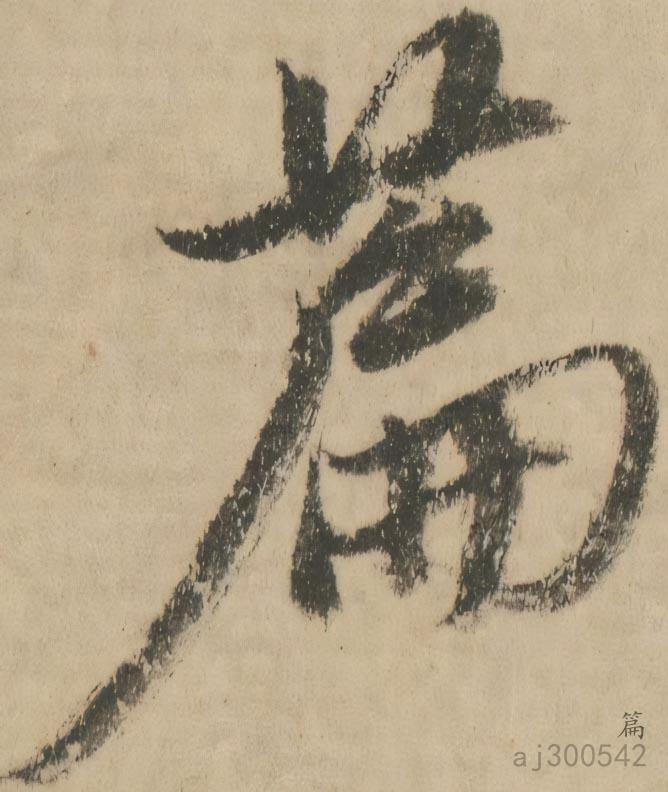 篇
篇
aj300542